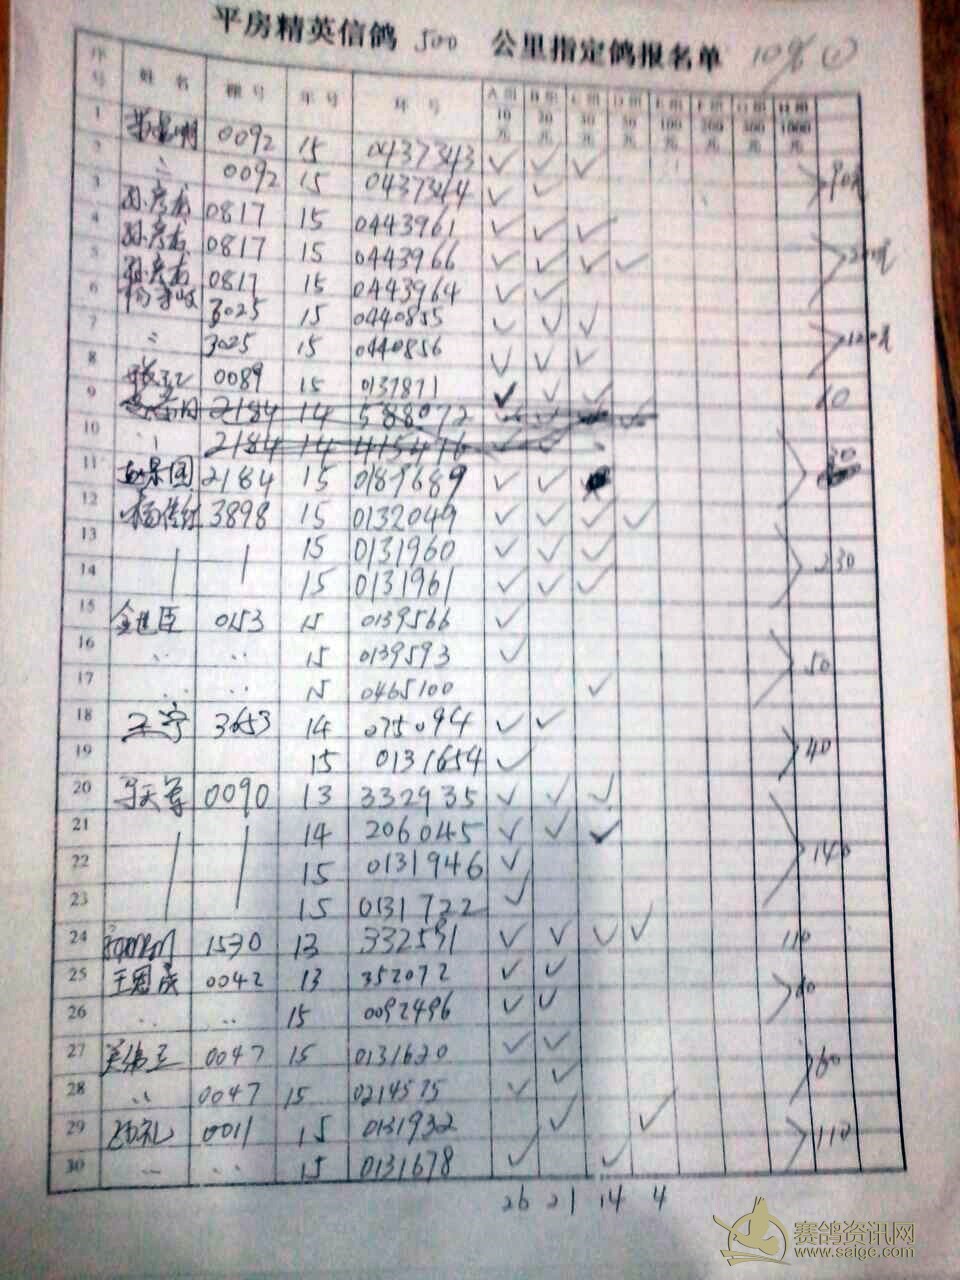 平房精英信鸽 500 公里指定鸽报名单 10% ①
序号 姓名 棚号 年号 环号 A组10元 B组20元 C组30元 D组50元 E组100元 F组200元 G组500元 H组1000元
1 0092 15 0437343 ✓ ✓ ✓
2 〃 0092 15 0437344 ✓ ✓ 90元
3 孙彦成 0817 15 0443961 ✓ ✓ ✓
4 孙彦成 0817 15 0443966 ✓ ✓ ✓ ✓
5 孙彦成 0817 15 0443964 ✓ ✓
6 3025 15 0440855 ✓ ✓ ✓
7 〃 3025 15 0440856 ✓ ✓ ✓ 120元
8 0089 15 0137871 ✓ ✓ ✓ 60
9 2184 14 588072
10 〃 2184 14 415416
11 2184 15 0189689 ✓ ✓ 30
12 杨俊红 3898 15 0132049 ✓ ✓ ✓ ✓
13 15 0131960 ✓ ✓ ✓ 230
14 15 0131961 ✓ ✓ ✓
15 金进臣 0153 15 0139566 ✓
16 〃 〃 15 0139593 ✓ 50
17 〃 〃 15 0465100 ✓
18 王宇 3653 14 075094 ✓ ✓
19 15 0131654 ✓ 40
20 马天尊 0090 13 332935 ✓ ✓ ✓
21 14 206045 ✓ ✓ ✓
22 15 0131946 ✓ 140
23 15 0131722 ✓
24 1530 13 332591 ✓ ✓ ✓ ✓ 110
25 王冠成 0042 13 352072 ✓ ✓
26 〃 〃 15 0092496 ✓ ✓ 60
27 0047 15 0131620 ✓ ✓
28 〃 0047 15 0214575 ✓ ✓ 60
29 0011 15 0131932 ✓ ✓
30 〃 〃 15 0131678 ✓ ✓ 110
26 21 14 4
赛鸽资讯网
www.saigc.com